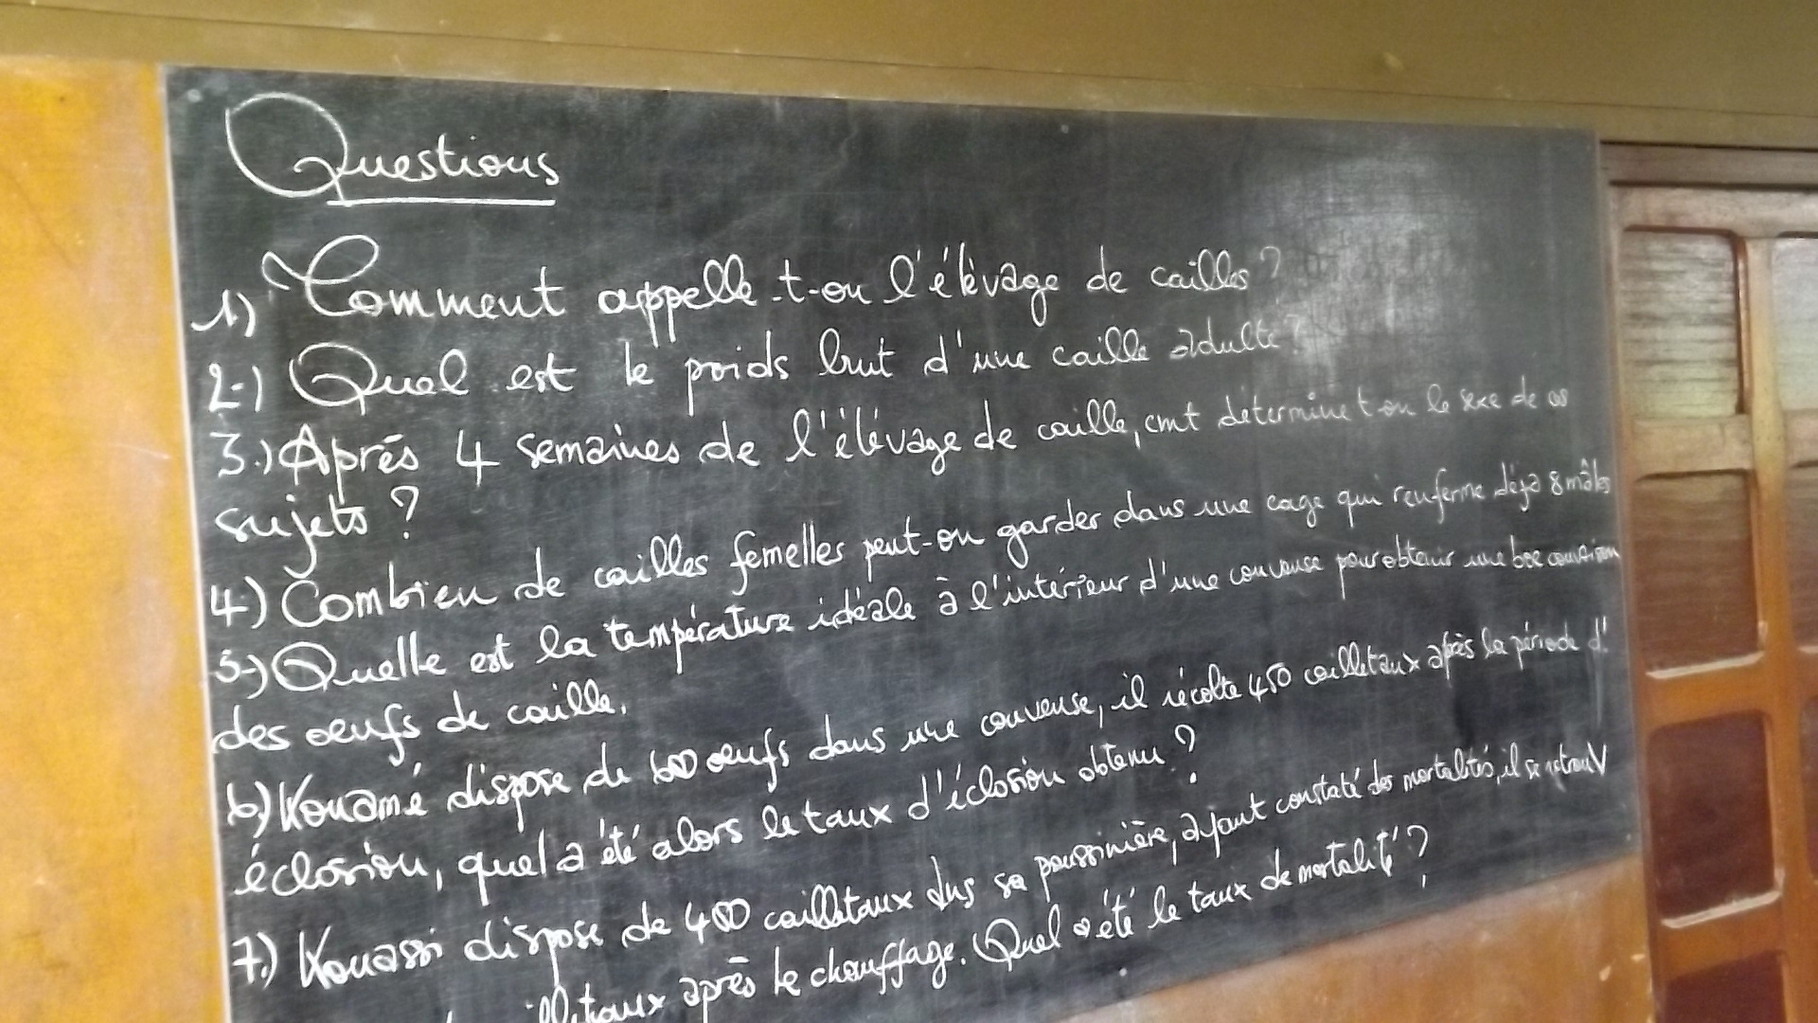 Questions
1) Comment appelle-t-on l'élèvage de cailles ?
2-) Quel est le poids brut d'une caille adulte ?
3.) Après 4 semaines de l'élévage de caille, cmt détermine t on le sexe de ces
sujets ?
4-) Combien de cailles femelles peut-on garder dans une cage qui renferme déjà 8 mâles
5-) Quelle est la température idéale à l'intérieur d'une couveuse pour obtenir une
des oeufs de caille.
6) Kouamé dispose de 600 oeufs dans une couveuse, il récolte 450 cailletaux après la période d'
éclosion, quel a été alors le taux d'éclosion obtenu ?
7.) Kouassi dispose de 400 cailletaux dns sa poussinière, ayant constaté des mortalités, il se retrouv
après le chauffage. Quel a été le taux de mortalité ?